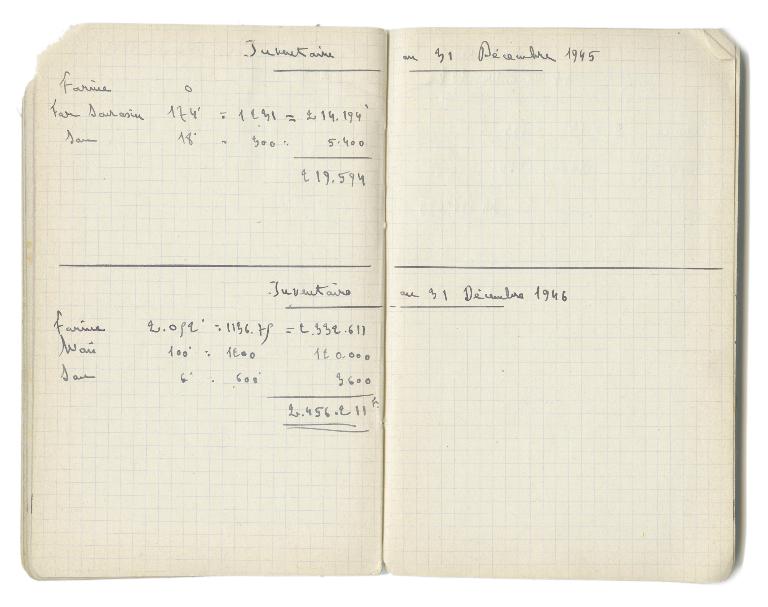 Inventaire au 31 Décembre 1945
Farine 0
Far Sarasin 174' = 1231 = 214.194'
Son 18' = 300 = 5.400
219.594
Inventaire au 31 Décembre 1946
Farine 2.052' = 1136.75 = 2.332.611
Maïs 100' = 1200 120.000
Son 6' = 600' 3600
2.456.211 F.